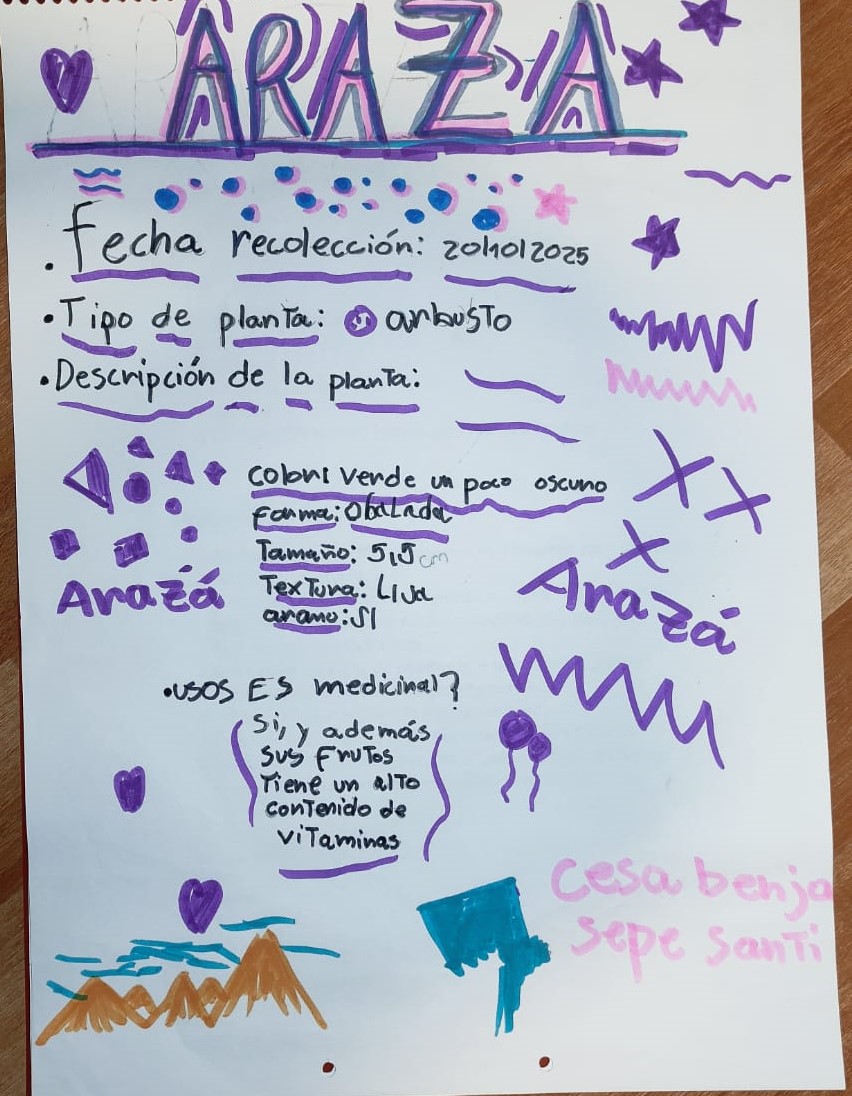 ARAZA
. fecha recolección: 20/10/2025
• Tipo de planta: arbusto
• Descripción de la planta:
Color: Verde un poco oscuro
Forma: Obalada
Tamaño: 5,5 cm
Textura: Lisa
aramo: SI
Arazá
Arazá
• USOS ES medicinal?
Si, y además
sus frutos
Tiene un alto
contenido de
vitaminas
Cesa benja
sepe santi